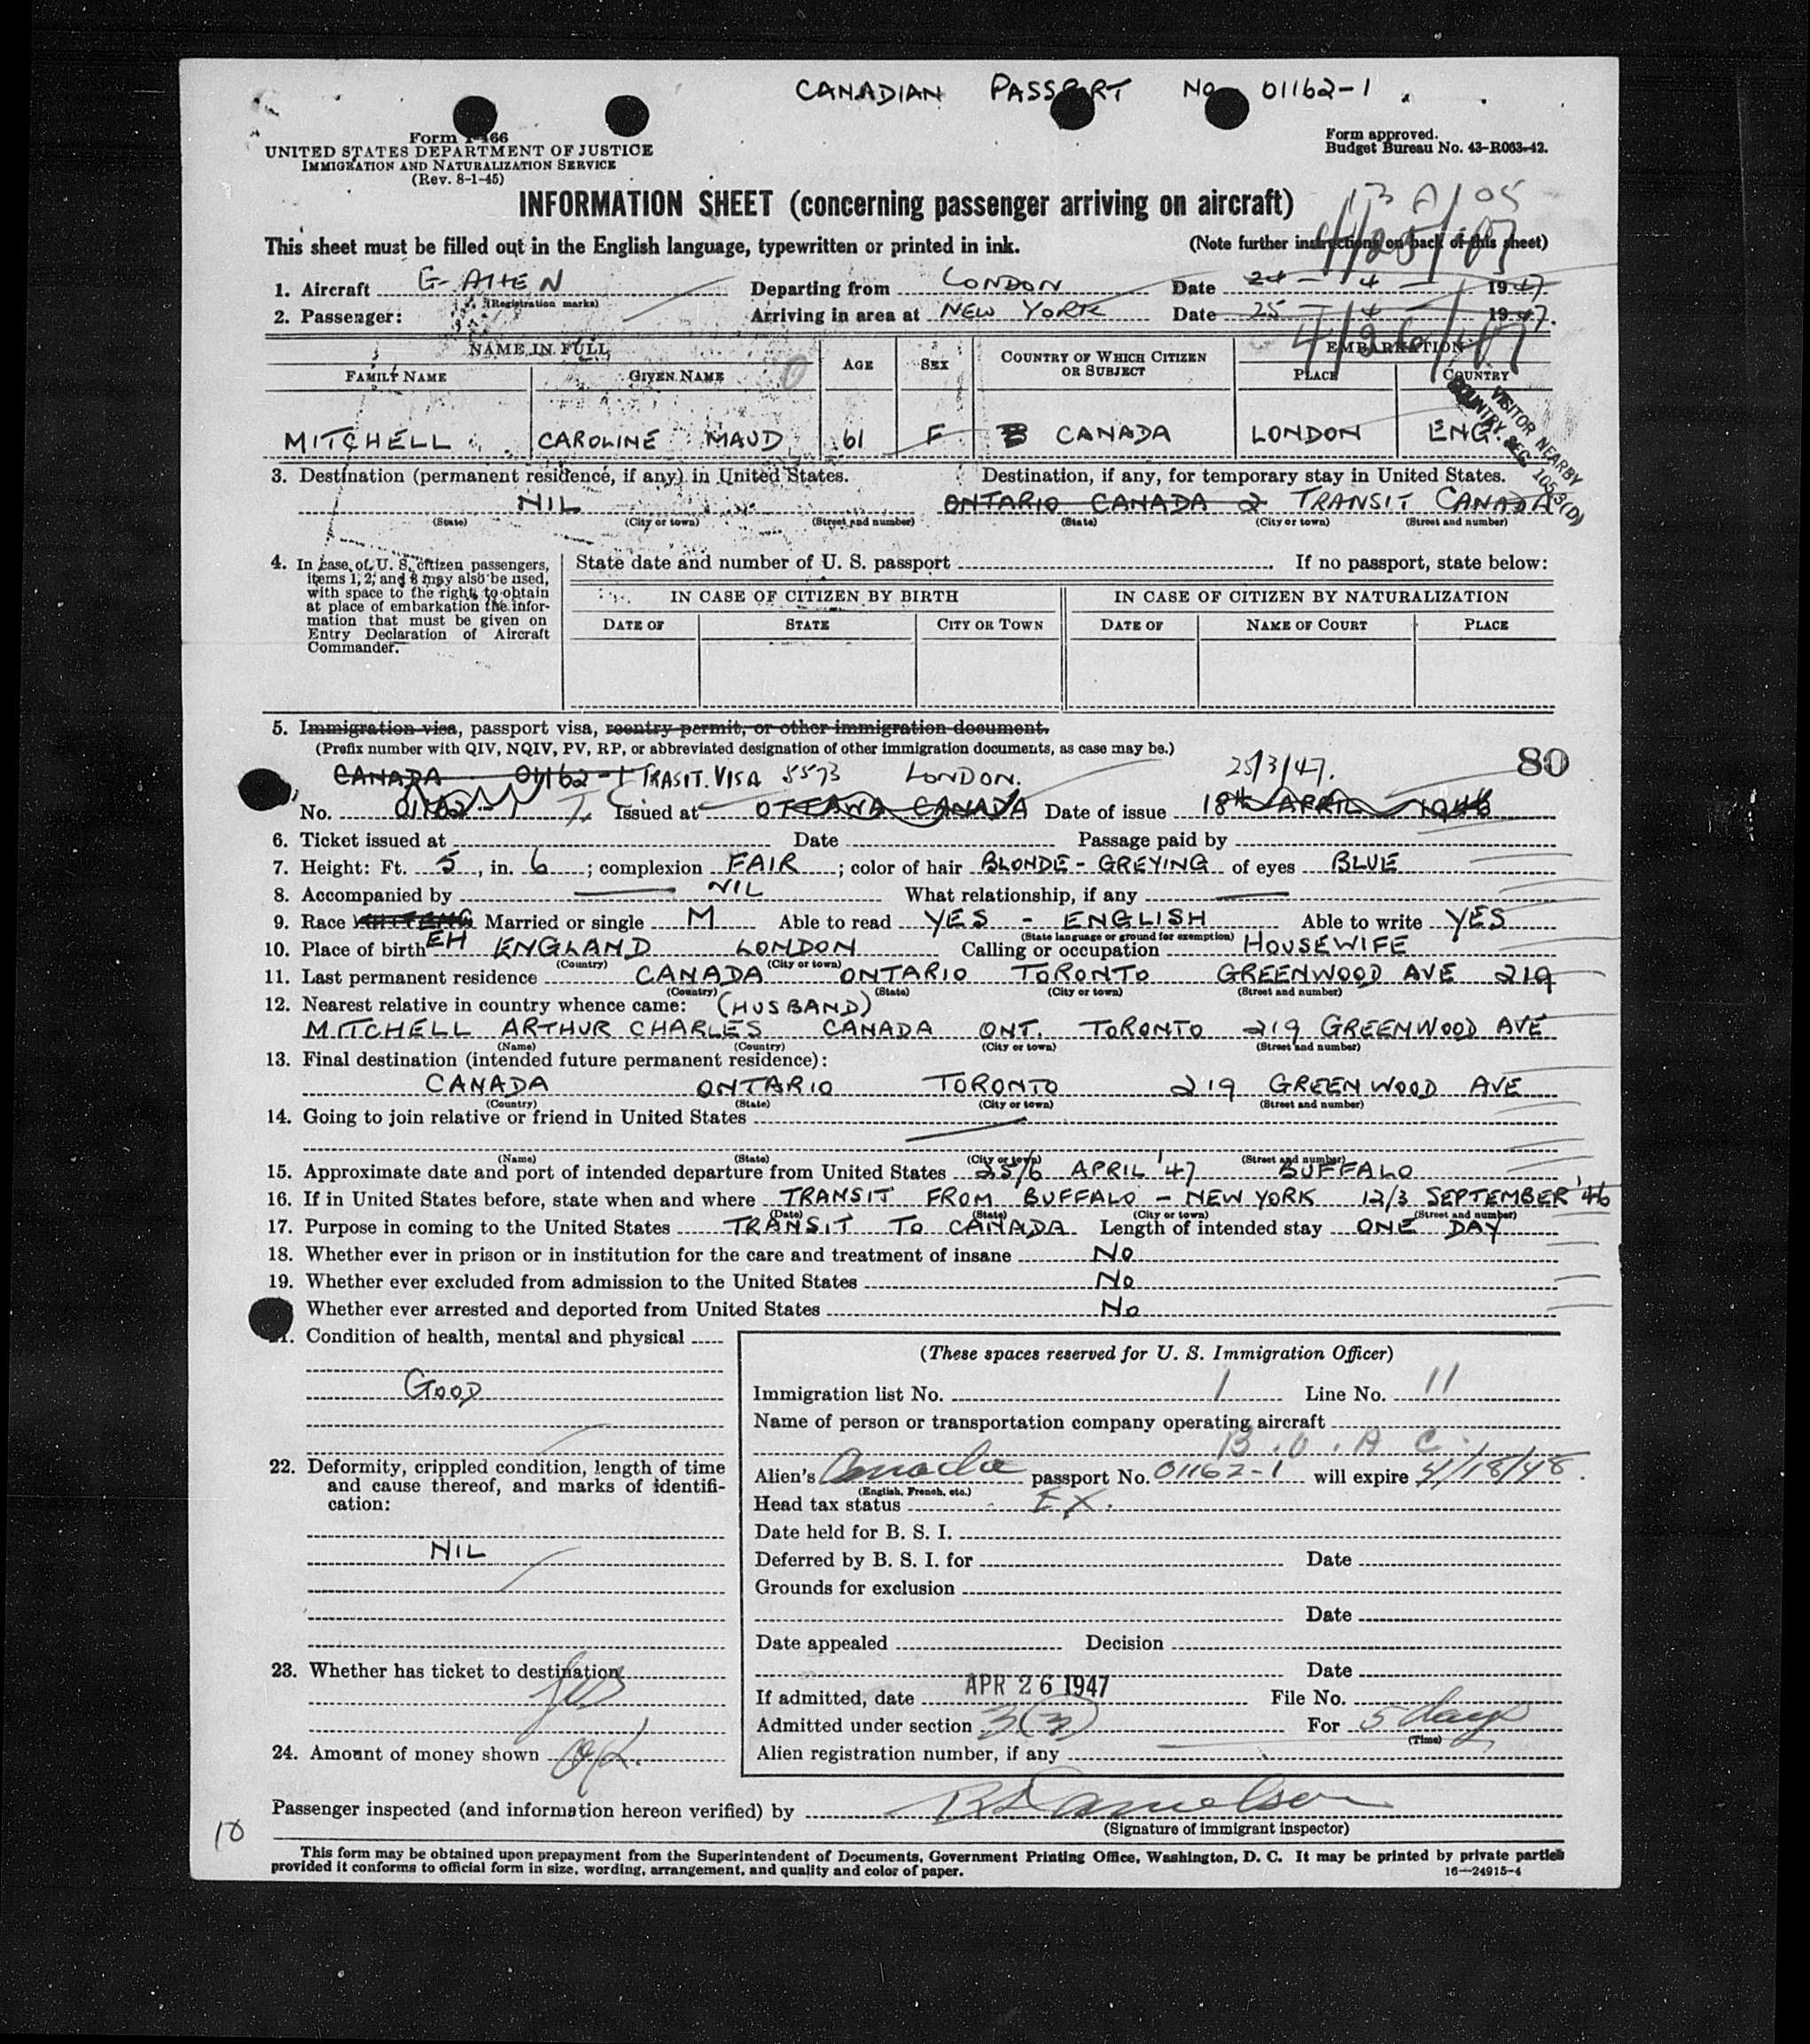 CANADIAN PASSPORT No 01162-1
Form I-466
UNITED STATES DEPARTMENT OF JUSTICE
IMMIGRATION AND NATURALIZATION SERVICE
(Rev. 8-1-45)
Form approved.
Budget Bureau No. 43-R063-42.
INFORMATION SHEET (concerning passenger arriving on aircraft)
This sheet must be filled out in the English language, typewritten or printed in ink.
(Note further instructions on back of this sheet)
4/25/47
1. Aircraft G-AHEN Departing from LONDON Date 24 - 4 - 1947
(Registration marks)
2. Passenger: Arriving in area at NEW YORK Date 25 - 4 - 1947.
4/26/47
NAME IN FULL AGE SEX COUNTRY OF WHICH CITIZEN OR SUBJECT EMBARKATION
FAMILY NAME GIVEN NAME PLACE COUNTRY
MITCHELL CAROLINE MAUD 61 F CANADA LONDON ENG.
VISITOR NEARBY
COUNTRY SEC. 105.3(D)
3. Destination (permanent residence, if any) in United States. Destination, if any, for temporary stay in United States.
NIL ONTARIO CANADA TRANSIT CANADA
(State) (City or town) (Street and number) (State) (City or town) (Street and number)
4. In case of U. S. citizen passengers, items 1, 2, and 8 may also be used, with space to the right to obtain at place of embarkation the information that must be given on Entry Declaration of Aircraft Commander.
State date and number of U. S. passport . If no passport, state below:
IN CASE OF CITIZEN BY BIRTH IN CASE OF CITIZEN BY NATURALIZATION
DATE OF STATE CITY OR TOWN DATE OF NAME OF COURT PLACE
5. Immigration visa, passport visa, reentry permit, or other immigration document.
(Prefix number with QIV, NQIV, PV, RP, or abbreviated designation of other immigration documents, as case may be.)
80
CANADA 01162-1 TRASIT. VISA 5573 LONDON. 25/3/47.
No. 01162-1 Issued at OTTAWA CANADA Date of issue 18th APRIL 1946
6. Ticket issued at Date Passage paid by
7. Height: Ft. 5, in. 6; complexion FAIR; color of hair BLONDE-GREYING of eyes BLUE
8. Accompanied by NIL What relationship, if any
9. Race Married or single M Able to read YES - ENGLISH Able to write YES
(State language or ground for exemption)
10. Place of birth EH ENGLAND LONDON Calling or occupation HOUSEWIFE
(Country) (City or town)
11. Last permanent residence CANADA ONTARIO TORONTO GREENWOOD AVE 219
(Country) (State) (City or town) (Street and number)
12. Nearest relative in country whence came: (HUSBAND)
MITCHELL ARTHUR CHARLES CANADA ONT. TORONTO 219 GREENWOOD AVE
(Name) (Country) (City or town) (Street and number)
13. Final destination (intended future permanent residence):
CANADA ONTARIO TORONTO 219 GREENWOOD AVE
(Country) (State) (City or town) (Street and number)
14. Going to join relative or friend in United States
(Name) (State) (City or town) (Street and number)
15. Approximate date and port of intended departure from United States 25/6 APRIL '47 BUFFALO
16. If in United States before, state when and where TRANSIT FROM BUFFALO - NEW YORK 12/3 SEPTEMBER '46
(Date) (State) (City or town) (Street and number)
17. Purpose in coming to the United States TRANSIT TO CANADA Length of intended stay ONE DAY
18. Whether ever in prison or in institution for the care and treatment of insane No
19. Whether ever excluded from admission to the United States No
Whether ever arrested and deported from United States No
21. Condition of health, mental and physical
GOOD
22. Deformity, crippled condition, length of time and cause thereof, and marks of identification:
NIL
23. Whether has ticket to destination yes
24. Amount of money shown OK.
(These spaces reserved for U. S. Immigration Officer)
Immigration list No. 1 Line No. 11
Name of person or transportation company operating aircraft
B.O.A.C.
Alien's Canada passport No. 01162-1 will expire 4/18/48.
(English, French, etc.)
Head tax status EX.
Date held for B. S. I.
Deferred by B. S. I. for Date
Grounds for exclusion
Date
Date appealed Decision
Date
If admitted, date APR 26 1947 File No.
Admitted under section 3(3) For 5 days
(Time)
Alien registration number, if any
Passenger inspected (and information hereon verified) by
(Signature of immigrant inspector)
10
This form may be obtained upon prepayment from the Superintendent of Documents, Government Printing Office, Washington, D. C. It may be printed by private parties
provided it conforms to official form in size, wording, arrangement, and quality and color of paper.
16—24915-4